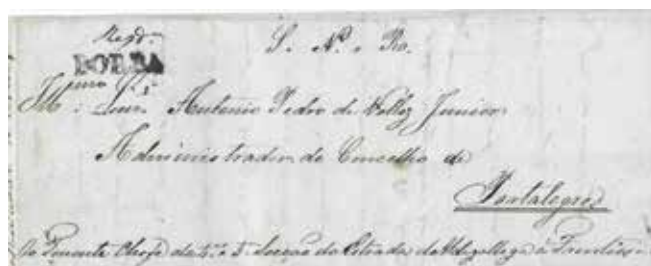 Regdo.
S. N. e R.
BORBA
Illmo Snr. Antonio Pedro de Vellez Junior
Administrador do Concelho de
Portalegre
Do Tenente Chefe da 4ª e 5ª Secção da Estrada de Aldegallega á Fronteira